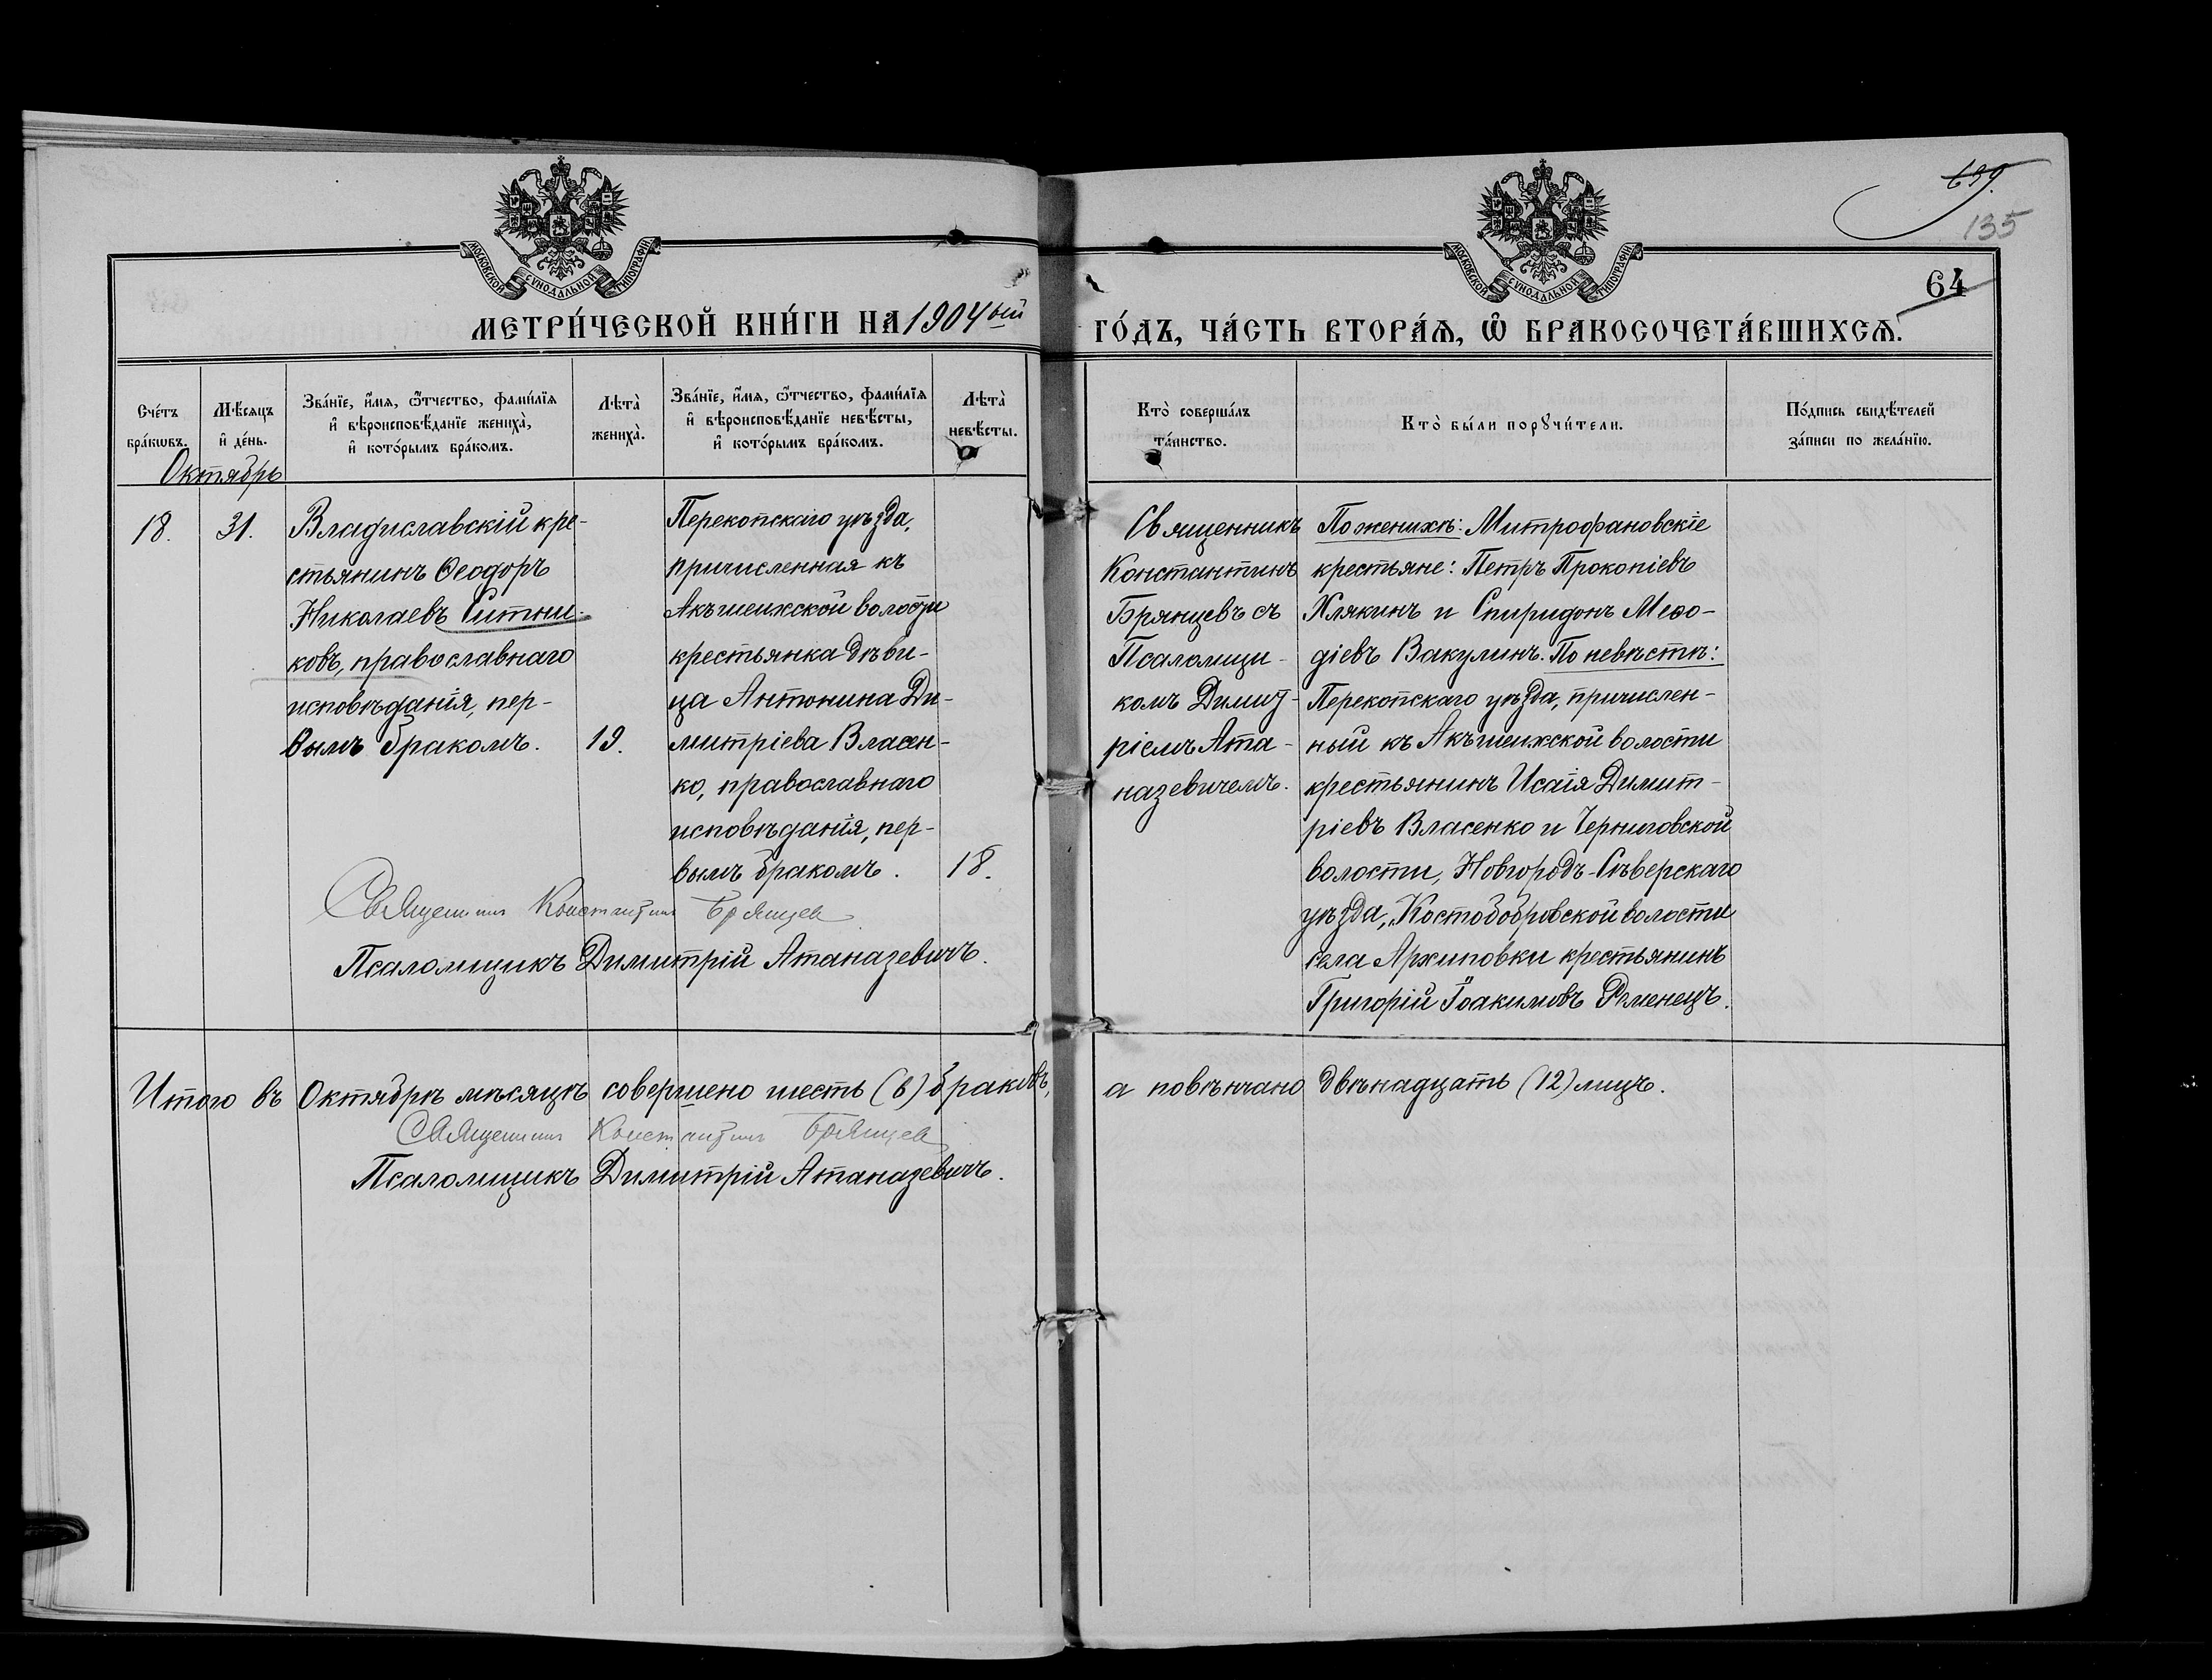 699.
135
64
МОСКОВСКОЙ СУНОДАЛЬНОЙ ТИПОГРАФІИ
МОСКОВСКОЙ СУНОДАЛЬНОЙ ТИПОГРАФІИ
МЕТРИ́ЧЕСКОЙ КНИ́ГИ НА 1904ый
ГО́ДЪ, ЧА́СТЬ ВТОРА́Ѧ, Ѽ БРАКОСОЧЕТА́ВШИХСѦ.
Сче́тъ
бра́кѡвъ.
Мѣ́сяцъ
и҆ де́нь.
Зва́нїе, и҆́мѧ, ѻ҆́тчество, фами́лїѧ
и҆ вѣроисповѣ́данїе жениха̀,
и҆ кото́рымъ бра́комъ.
Лѣта̀
жениха̀.
Зва́нїе, и҆́мѧ, ѻ҆́тчество, фами́лїѧ
и҆ вѣроисповѣ́данїе невѣ́сты,
и҆ кото́рымъ бра́комъ.
Лѣта̀
невѣ́сты.
Кто̀ соверша́лъ
та́инство.
Кто̀ бы́ли порꙋчи́тели.
По́дпись свидѣ́телей
за́писи по жела́нїю.
Октябрь
18.
31.
Владиславскій кре-
стьянинъ Ѳеодоръ
Николаевъ Ситни-
ковъ, православнаго
исповѣданія, пер-
вымъ бракомъ.
19.
Перекопскаго уѣзда,
причисленная къ
Акъшеихской волости
крестьянка дѣви-
ца Антонина Ди-
митріева Власен-
ко, православнаго
исповѣданія, пер-
вымъ бракомъ.
18.
Священникъ
Константинъ
Брянцевъ съ
Псаломщи-
комъ Димит-
ріемъ Ата-
назевичемъ.
По женихѣ: Митрофановскіе
крестьяне: Петръ Прокопіевъ
Хлякинъ и Спиридонъ Меѳо-
діевъ Вакулинъ. По невѣстѣ:
Перекопскаго уѣзда, причислен-
ный къ Акъшеихской волости
крестьянинъ Исаія Димит-
ріевъ Власенко и Черниговской
волости, Новгородъ-Сѣверскаго
уѣзда, Костобобровской волости
села Архиповки крестьянинъ
Григорій Іоакимовъ
Священникъ Константинъ Брянцев
Псаломщикъ Димитрій Атаназевичъ.
Итого въ Октябрѣ мѣсяцѣ совершено шесть (6) браковъ, а повѣнчано двѣнадцать (12) лицъ.
Священникъ Константинъ Брянцев
Псаломщикъ Димитрій Атаназевичъ.